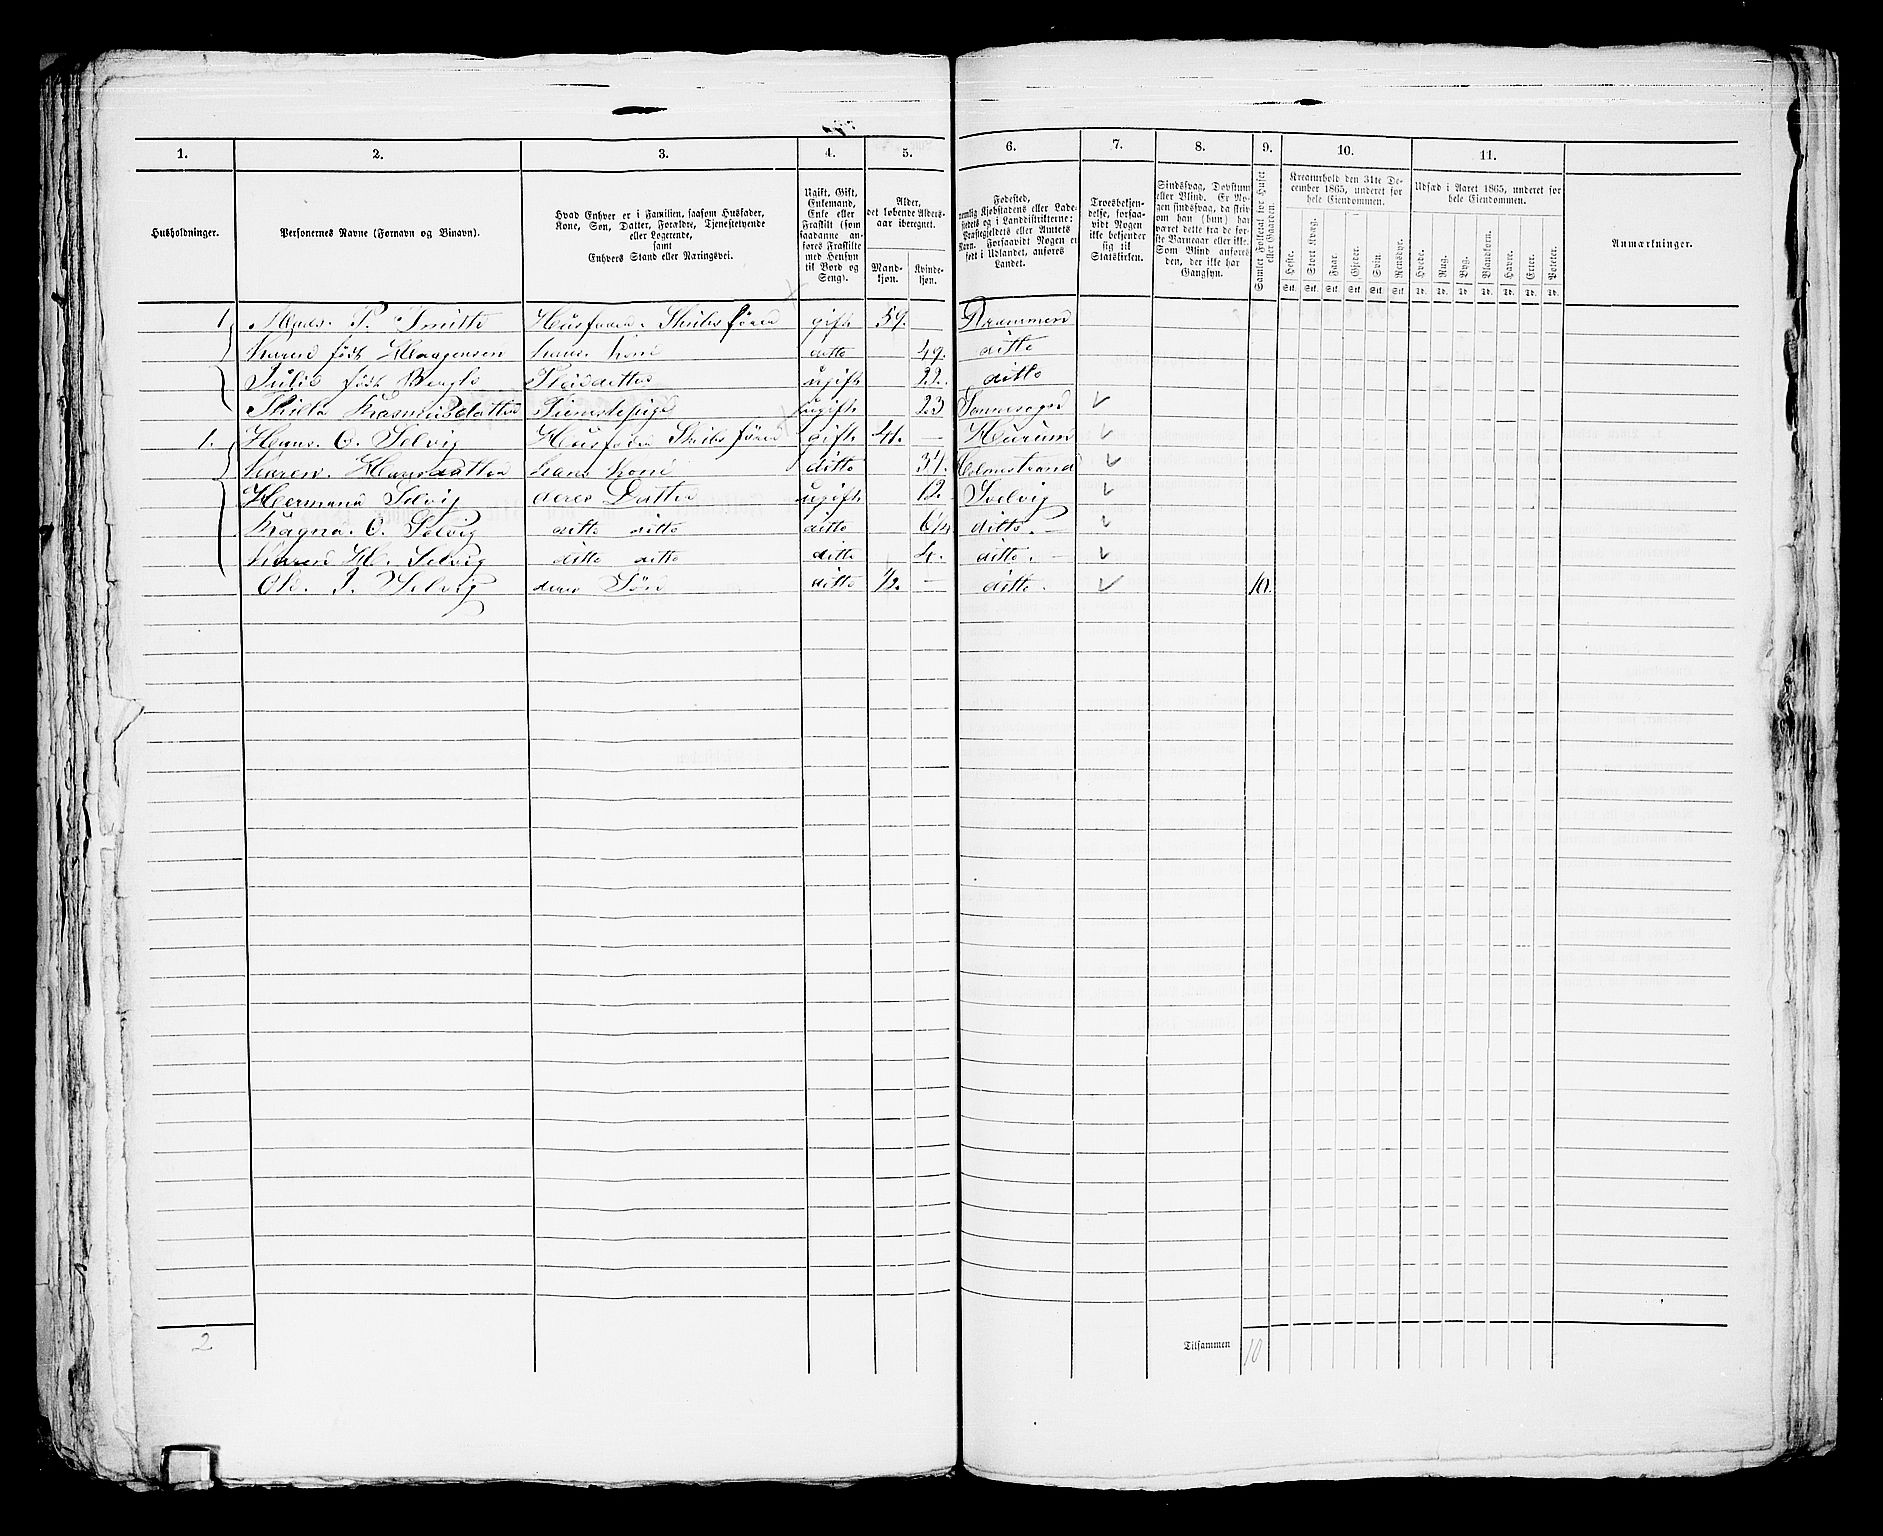 1. 2. 3. 4. 5. 6. 7. 8. 9. 10. 11.
Husholdninger.
Personernes Navne (Fornavn og Binavn).
Hvad Enhver er i Familien, saasom Husfader,
Kone, Søn, Datter, Forældre, Tjenestetyende
eller Logerende,
samt
Enhvers Stand eller Næringsvei.
Ugift, Gift,
Enkemand,
Enke eller
Fraskilt (som
saadanne an-
føres Fraskilte
med Hensyn
til Bord og
Seng).
Alder,
det løbende Alders-
aar iberegnet.
Mand-
kjøn.
Kvinde-
kjøn.
Fødested,
nemlig Kjøbstadens eller Lade-
stedets og i Landdistrikterne:
Præstegjeldets eller Amtets
Navn. Forsaavidt Nogen er
født i Udlandet, anføres
Landet.
Troesbekjen-
delse, forsaa-
vidt Nogen
ikke bekjender
sig til
Statskirken.
Sindssvag, Døvstum
eller Blind. Er No-
gen sindssvag, da skriv
om han (hun) har
været dette fra de for-
ste Barneaar eller ikke.
Som Blind anføres
den, der ikke har
Gangsyn.
Samlet Folketal for Huset
eller Gaarden.
Kreaturhold den 31te De-
cember 1865, underet for
hele Eiendommen.
Heste. Stort Kvæg. Faar. Gjeder. Svin. Rensdyr.
Stk. Stk. Stk. Stk. Stk. Stk.
Udsæd i Aaret 1865, underet for
hele Eiendommen.
Hvede. Rug. Byg. Blandkorn. Havre. Erter. Poteter.
Td. Td. Td. Td. Td. Td. Td.
Anmærkninger.
1 Mads. P. Smitte Husfader Skibsfører gift 54. Drammen
Karen født Haagensen hans Kone ditto 49. ditto
Julie født ugift 22. ditto
Rasmusdatter Tjenestepige ugift 23
1. Hans. O. Selvig Husfader Skibsfører gift 41. – Hurum
Karen. Hansdatter hans Kone ditto 34. Holmestrand
Hermana Selvig deres Datter ugift 12. Svelvig
Ragna. O. Selvig ditto ditto ditto 6 ditto. –
Karen H. Selvig ditto ditto ditto 4. ditto. –
Ole. J. Selvig deres Søn ditto 1/2. – ditto. 10.
2 Tilsammen 10